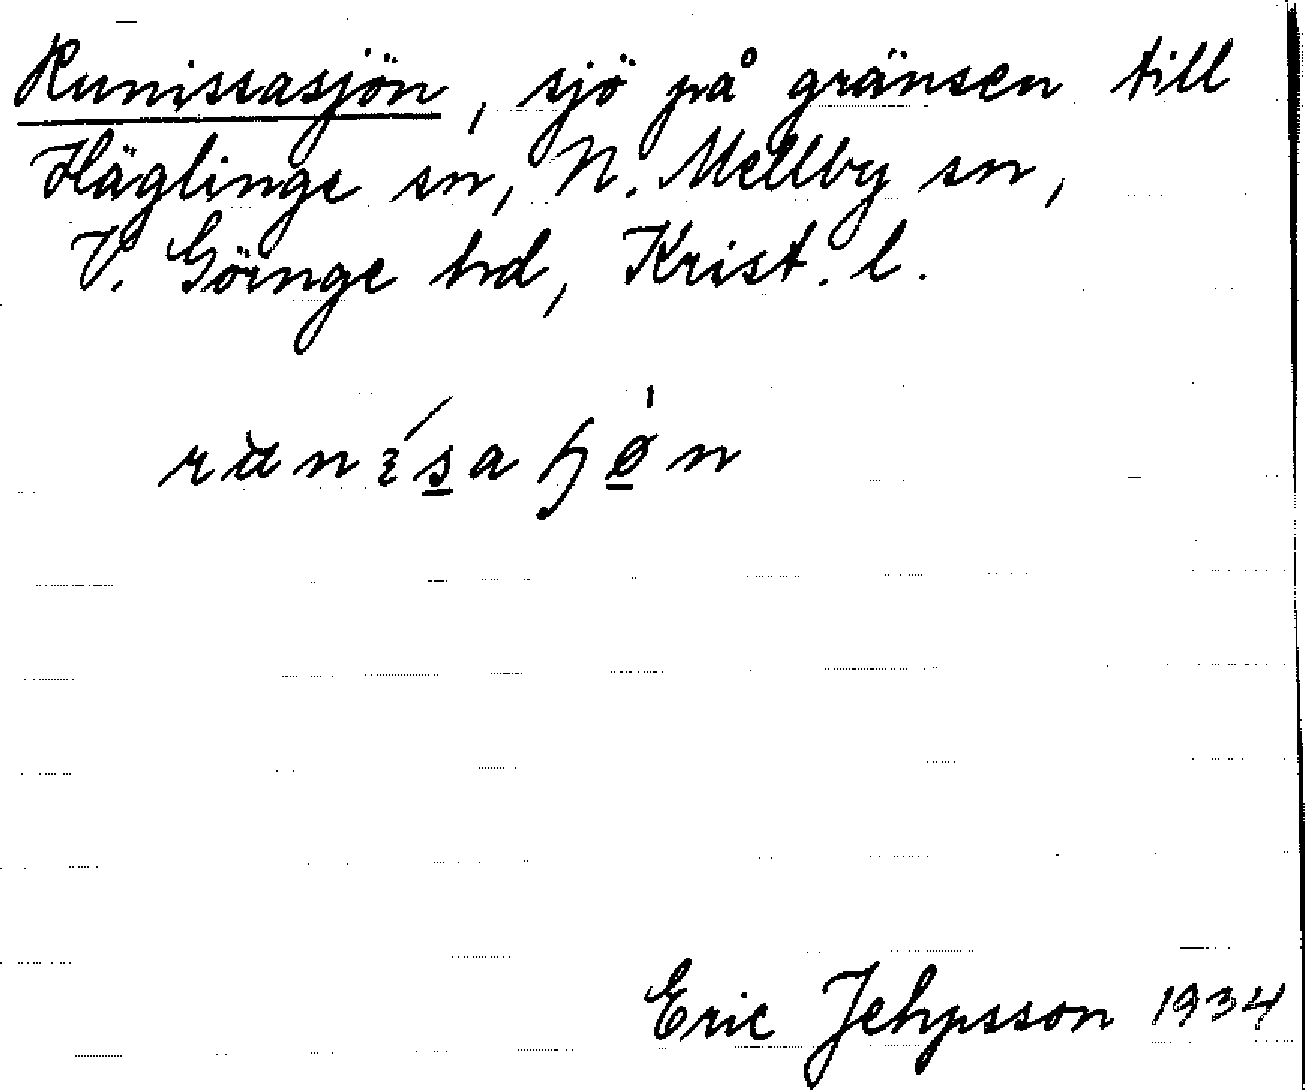 Runissasjön, sjö på gränsen till
Häglinge sn, N. Mellby sn,
V. Göinge hd, Krist. l.
Eric Jehpsson 1934